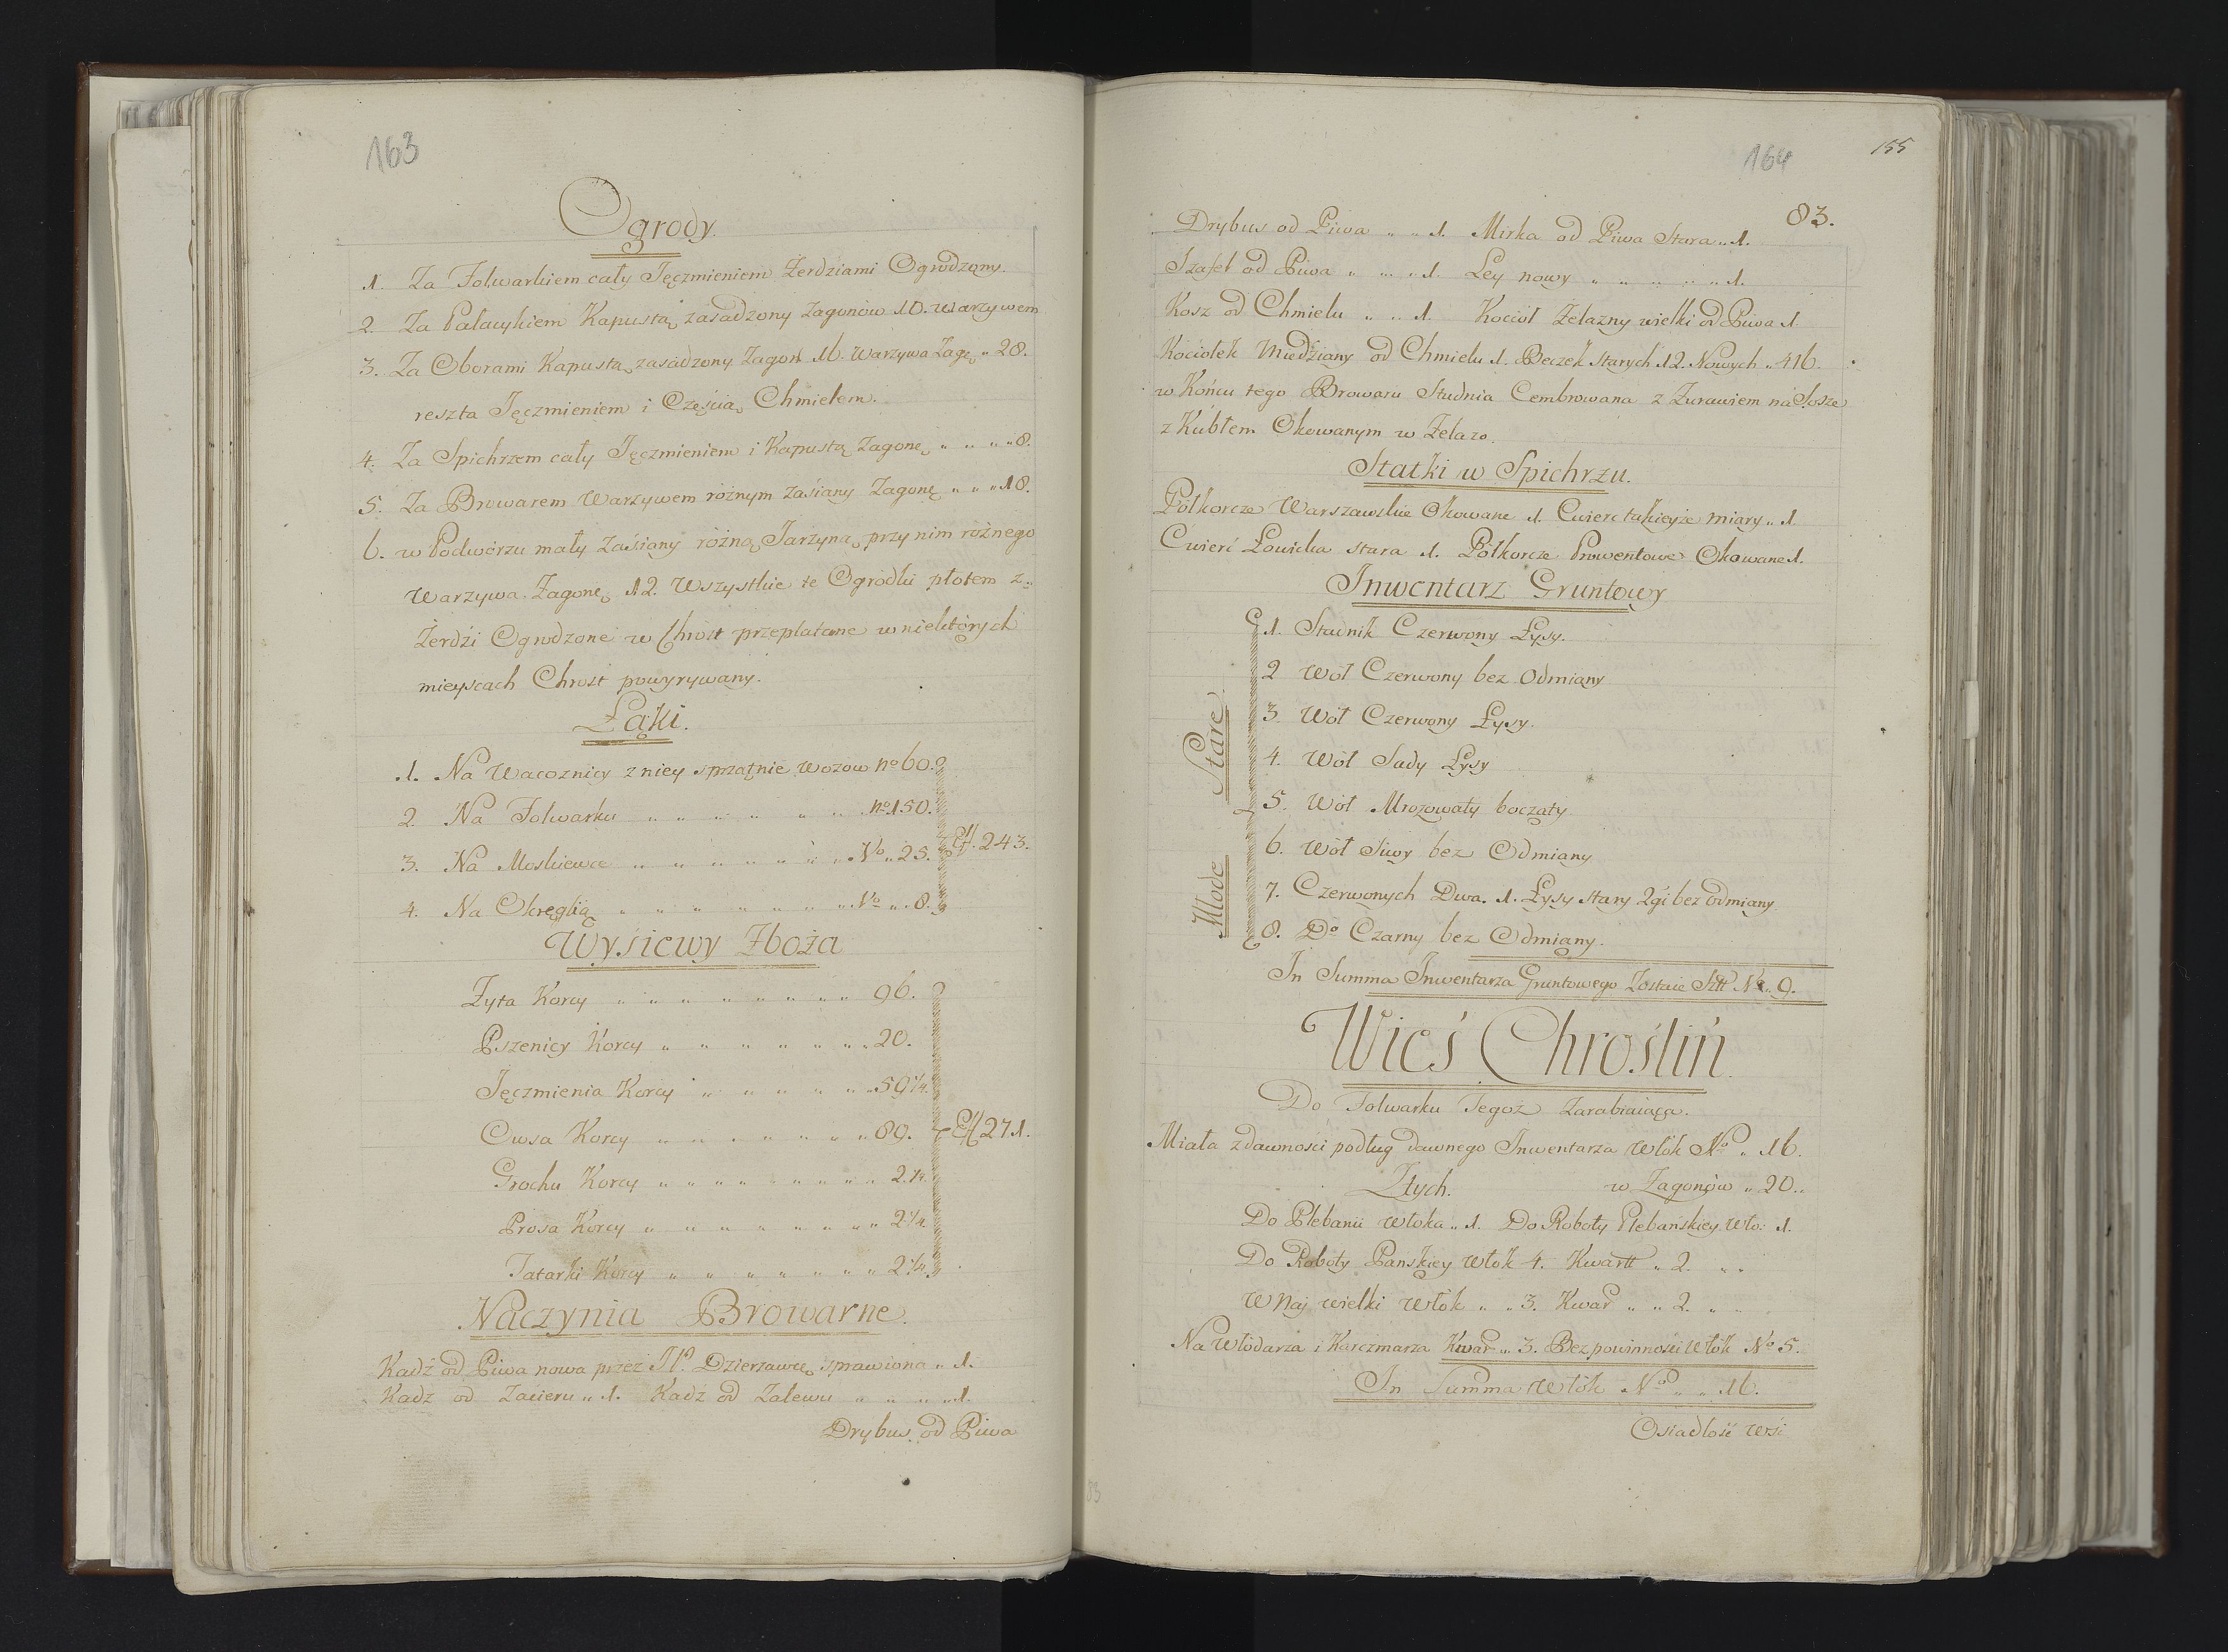 163
Ogrody.
1. Za Folwarkiem cały Jęczmieniem Żerdziami Ogrodzony.
2. Za Pałacykiem Kapustą zasadzony Zagonów 10. warzywem
3. Za Oborami Kapustą zasadzony Zagon 16. Warzywa Zagę „ 28.
reszta Jęczmieniem i Częścią Chmielem.
4. Za Spichrzem cały Jęczmieniem i Kapustą Zagonę „ „ „ „ 8.
5. Za Browarem Warzywem róźnym Zasiany Zagonę „ „ „ 18.
6. w Podwórzu mały Zasiany róźną Jarzyną przy nim róźnego
Warzywa Zagonę 12. Wszystkie te Ogródki płotem z„
Żerdźi Ogrodzone w Chrost przeplatane w niektórych
mieyscach Chrost powyrywany.
Łąki.
1. Na Wacoznicy z niey sprzątnie Wozow no 60.
2. Na Folwarku „ „ „ „ „ „ no 150.
3. Na Moskiewce „ „ „ „ „ „ „ No „ 25.
Eff. 243.
4. Na Okręglią „ „ „ „ „ „ „ No „ 8.
Wysiewy Zboża
Żyta Korcy „ „ „ „ „ „ „ „ 96.
Pszenicy Korcy „ „ „ „ „ „ „ 20.
Jęczmienia Korcy „ „ „ „ „ „ 59 1/4.
Owsa Korcy „ „ „ „ „ „ „ 89.
Eff 271.
Grochu Korcy „ „ „ „ „ „ „ „ 2.1/4.
Prosa Korcy „ „ „ „ „ „ „ „ 2 1/4
Tatarki Korcy „ „ „ „ „ „ „ 2 1/4.
Naczynia Browarne.
Kadź od Piwa nowa przez JP. Dzierzawcę sprawiona „ 1.
Kadz od Zacieru „ 1. Kadz od Zalewu „ „ „ „ 1.
Drybus od Piwa
164
155
83.
Drybus od Piwa „ „ 1. Mirka od Piwa Stara „ 1.
Szafel od Piwa „ „ „ 1. Ley nowy „ „ „ „ „ 1.
Kosz od Chmielu „ „ 1. Kociół Żelazny wielki od Piwa 1.
Kociołek Miedziany od Chmielu 1. Beczek Starych 12. Nowych „ 416.
w Końcu tego Browaru Studnia Cembrowana z Żurawiem na Sosze
z Kubłem Okowanym w Żelazo.
Statki w Spichrzu.
Półkorcze Warszawskie Okowane 1. Cwierc takieyze miary „ 1.
Ćwierć Łowicka stara 1. Półkorcze Prowentowe Okowane 1.
Inwentarz Gruntowy
Stare
1. Stadnik Czerwony Łysy.
2 Wół Czerwony bez Odmiany
3. Wół Czerwony Łysy.
4. Wół Sady Łysy
5. Wół Mrozowaty boczaty
Młode
6. Wół Siwy bez Odmiany
7. Czerwonych Dwa. 1. Łysy stary 2gi bez odmiany
8. Do Czarny bez Odmiany.
In Summa Inwentarza Gruntowego Zostaie Sztt No. 9.
Wieś Chroślin.
Do Folwarku Tegoż Zarabiaiąca.
Miała zdawności podług dawnego Inwentarza Włók No „ 16.
Złych. w Zagonów „ 20 „
Do Plebanii włoka „ 1. Do Roboty Plebańskiey wło: 1.
Do Roboty Panskiey włók 4. Kwartt „ 2. „ „
W Naj wielki włók „ „ 3. Kwar „ „ 2. „ „
Na Włodarza i Karczmarza Kwar „ 3. Bez powinności włók No 5.
In Summa Włók No „ „ 16.
Osiadłość wsi
83